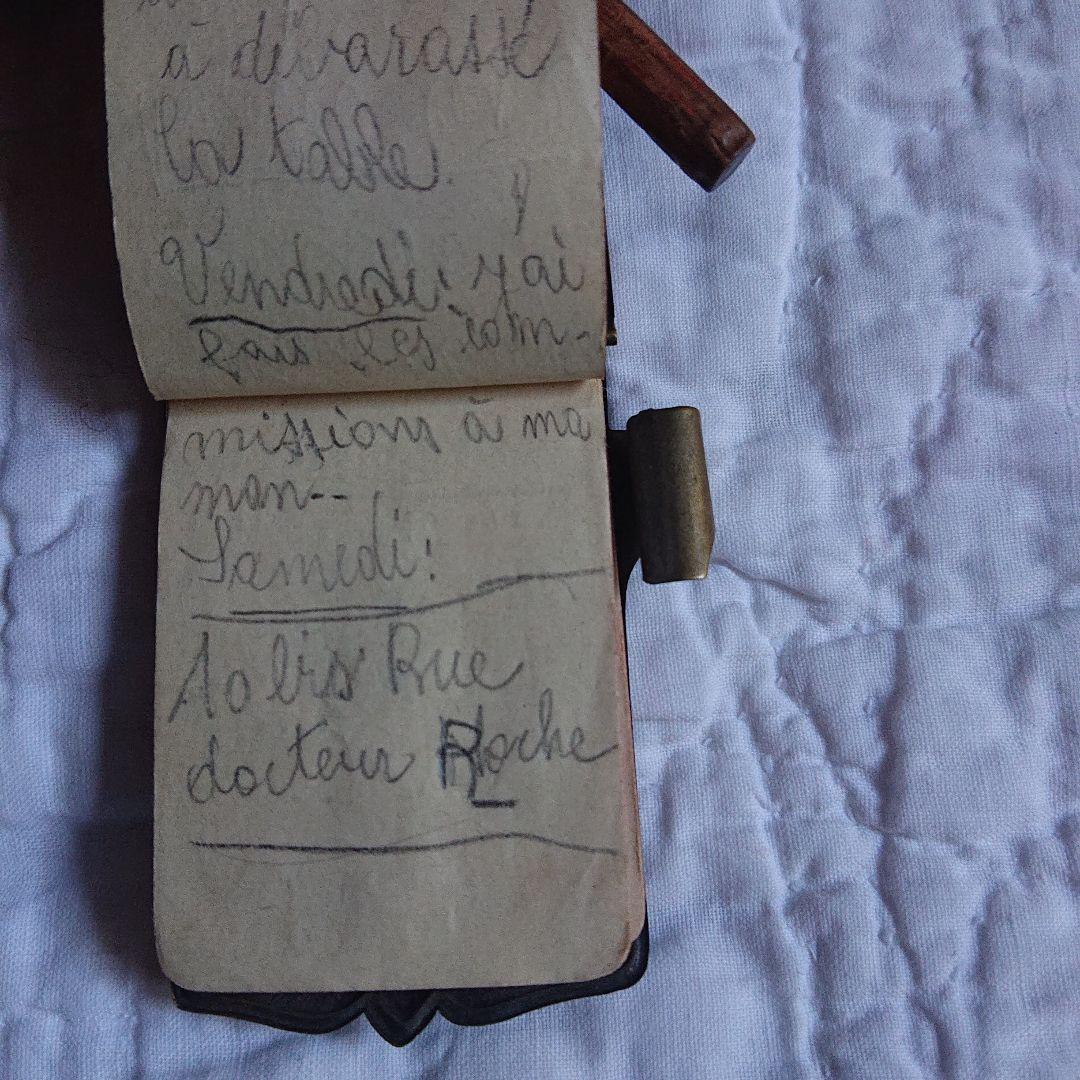 à dévarassé
la table.
Vendredi: y ai
fais les com-
missions à ma
man--
Samedi:
10 bis Rue
docteur Roche